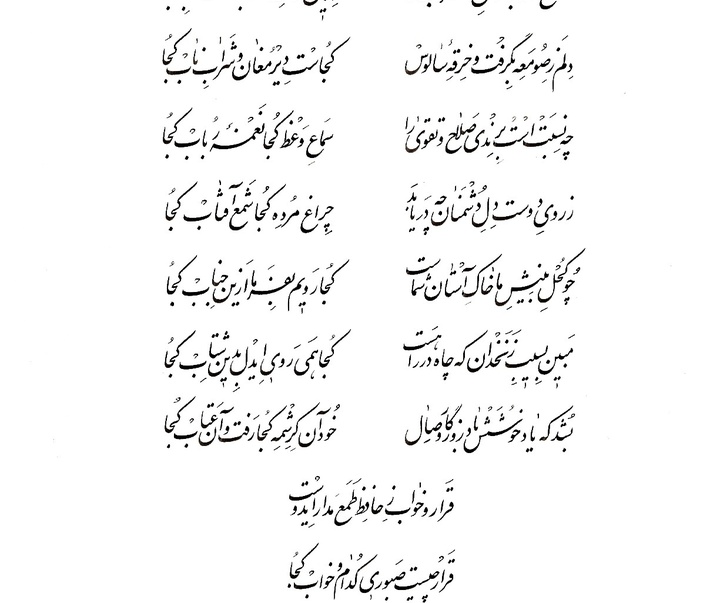 دلم ز صومعه بگرفت و خرقهٔ سالوس    کجاست دیر مغان و شراب ناب کجا
چه نسبت است برندی صلاح و تقوی را    سماع وعظ کجا نغمهٔ رباب کجا
ز روی دوست دل دشمنان چه دریابد    چراغ مرده کجا شمع آفتاب کجا
چو کحل بینش ما خاک آستان شماست    کجا رویم بفرما ازین جناب کجا
مبین بسیب زنخدان که چاه در راهست    کجا همی روی ایدل بدین شتاب کجا
بشد که یاد خوشش باد روزگار وصال    خود آن کرشمه کجا رفت و آن عتاب کجا
قرار و خواب ز حافظ طمع مدار ایدوست
قرار چیست صبوری کدام و خواب کجا